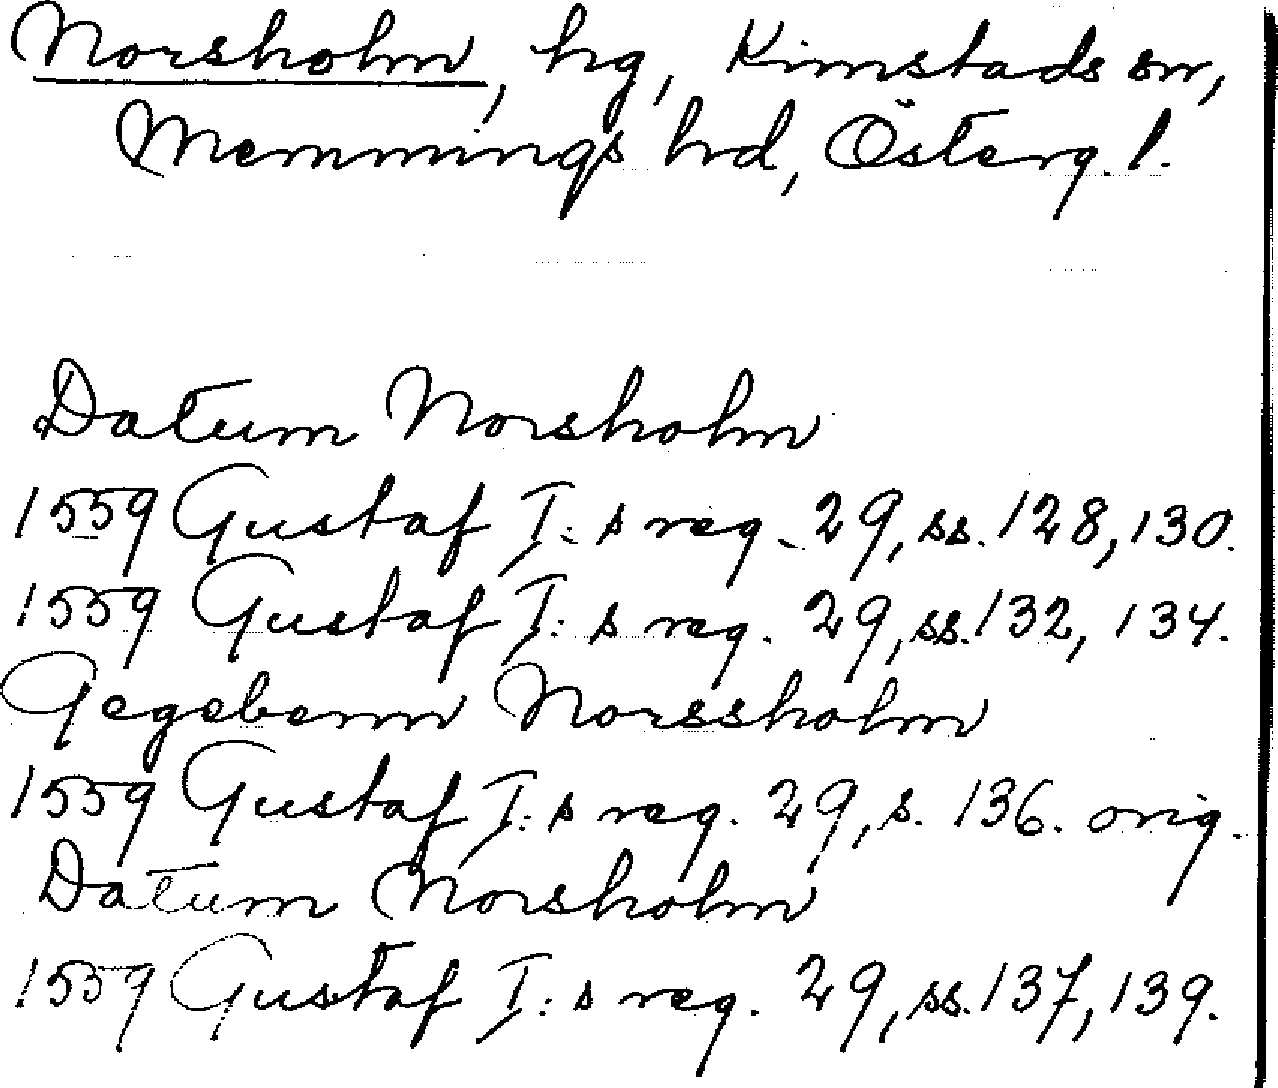 Norsholm, hg, Kimstads sn,
Memmings hrd, Österg. l.
Datum Norsholm
1559 Gustaf I:s reg. 29, ss. 128, 130.
1559 Gustaf I:s reg. 29, ss. 132, 134.
Gegebenn Norssholm
1559 Gustaf I:s reg. 29, s. 136. orig.
Datum Norsholm
1559 Gustaf I:s reg. 29, ss. 137, 139.